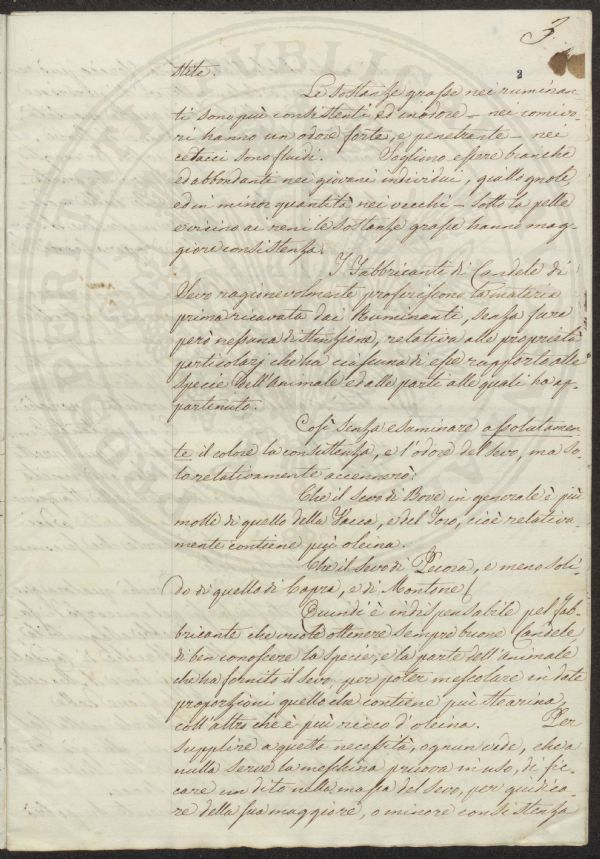 3.
2
stite.
Le sostanze grasse nei ruminan-
ti sono più consistenti ed inodore - nei
ri hanno un odore forte, e penetrante - nei
cetacei sono fluidi. Sogliono essere bianche
ed abbondanti nei giovani individui, giallognole
ed in minor quantità nei vecchi - sotto la pelle
e vicino ai reni le sostanze grasse hanno mag-
giore consistenza.
I Fabbricanti di Candele di
Sevo ragionevolmente preferiscono la materia
prima ricavata dai Ruminanti, senza fare
però nessuna distinzione, relativa alle proprietà
particolarj che ha ciascuna di esse rapporto alle
specie dell'Animale ed alle parti alle quali ha ap-
partenuto.
Così senza esaminare assolutamen-
te il colore la consistenza, e l'odore del sevo, ma so-
lo relativamente accennerò:
Che il sevo di Bove in generale è più
molle di quello della Vacca, e del Toro, cioè relativa-
mente contiene più oleina.
Che il sevo di Pecora, e meno soli-
do di quello di Capra, e di Montone.
Quindi è indispensabile pel fab-
bricante che vuole ottenere sempre buone Candele
di ben conoscere la specie, e la parte dell'animale
che ha fornito il sevo, per poter mescolare in date
proporzioni quello che contiene più stearina,
coll'altro che è più ricco d'oleina. Per
supplire a questa necessità, ognun vede, che a
nulla serve la meschina pruova in uso, di fic-
care un dito nella massa del sevo, per giudica-
re della sua maggiore, o minore consistenza